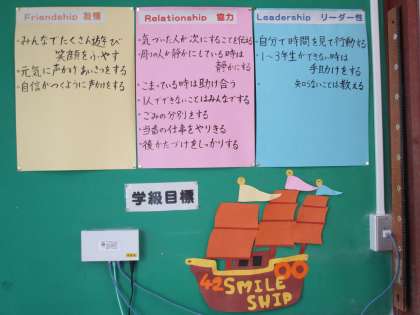 Friendship 友情
・みんなでたくさん遊び
笑顔をふやす
・元気に声かけあいさつをする
・自信がつくように声かけをする
Relationship 協力
・気づいた人が次にすることを伝える
・周りの人が静かにしている時は
静かにする
・こまっている時は助け合う
・1人でできないことはみんなでする
・ごみの分別をする
・当番の仕事をやりきる
・後かたづけをしっかりする
Leadership リーダー性
・自分で時間を見て行動する
・1~3年生ができない時は
手助けをする
知らないことは教える
学級目標
42 SMILE
SHIP